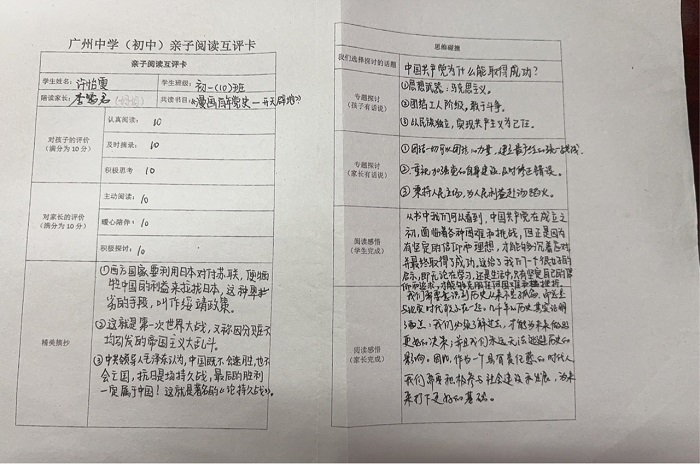 广州中学（初中）亲子阅读互评卡
亲子阅读互评卡
学生姓名：许怡雯 学生班级：初一(10)班
陪读家长： 共读书目：《漫画百年党史—开天辟地》
对孩子的评价
（满分为10分）
认真阅读： 10
及时摘录： 10
积极思考 10
对家长的评价
（满分为10分）
主动阅读： 10
暖心陪伴： 10
积极探讨： 10
精美摘抄
①西方国家要利用日本对付苏联，便牺
牲中国的利益来拉拢日本，这种卑
劣的手段，叫作绥靖政策。
②这就是第一次世界大战，又称因分赃不
均引发的帝国主义大乱斗。
③中共领导人毛泽东认为，中国既不会速胜，也不
会亡国，抗日是场持久战，最后的胜利
一定属于中国！这就是著名的《论持久战》。
思维碰撞
我们选择探讨的话题
中国共产党为什么能取得成功？
专题探讨
（孩子有话说）
①思想武器：马克思主义。
②团结工人阶级，敢于斗争。
③以民族独立，实现共产主义为己任。
专题探讨
（家长有话说）
①团结一切可以团结的力量，建立最广泛的统一战线。
②重视加强党的自身建设，及时修正错误。
③秉持人民立场，为人民利益赴汤蹈火。
阅读感悟
（学生完成）
从书中我们可以看到，中国共产党在成立之
初，面临着各种困难和挑战，但正是因为
有坚定的信仰和理想，才能够沉着应对
并最终取得了成功。这给了我们一个很好的
启示，即无论在学习，还是生活中，只有坚定自己的信
仰和追求，才能够克服任何困难和挑战。
阅读感悟
（家长完成）
我们需要意识到历史从来不是孤立，而是
与现实时代联系在一起。几十年的历史其实证明
了，我们必须了解过去，才能为未来做出
更好的决策，并且我们永远无法逃避历史的
影响。因此，作为一个具有责任感的时代人
我们需要积极参与社会建设和发展，为未
来打下更好的基础。